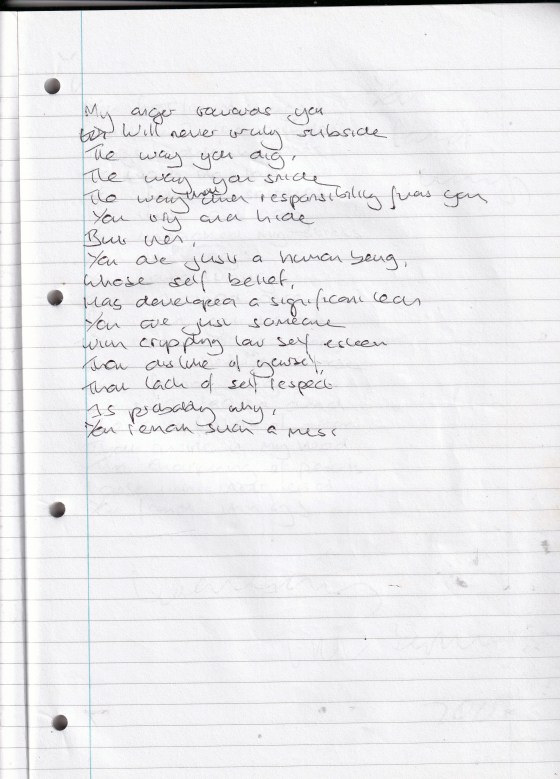 My anger towards you
Will never truly subside
The way you dig,
The way you snide
The way that when responsibility finds you
You try and hide
But then,
You are just a human being,
Whose self belief,
Has developed a significant lean
You are just someone
With crippling low self esteem
That dislike of yourself,
That lack of self respect
Is probably why,
You remain such a mess